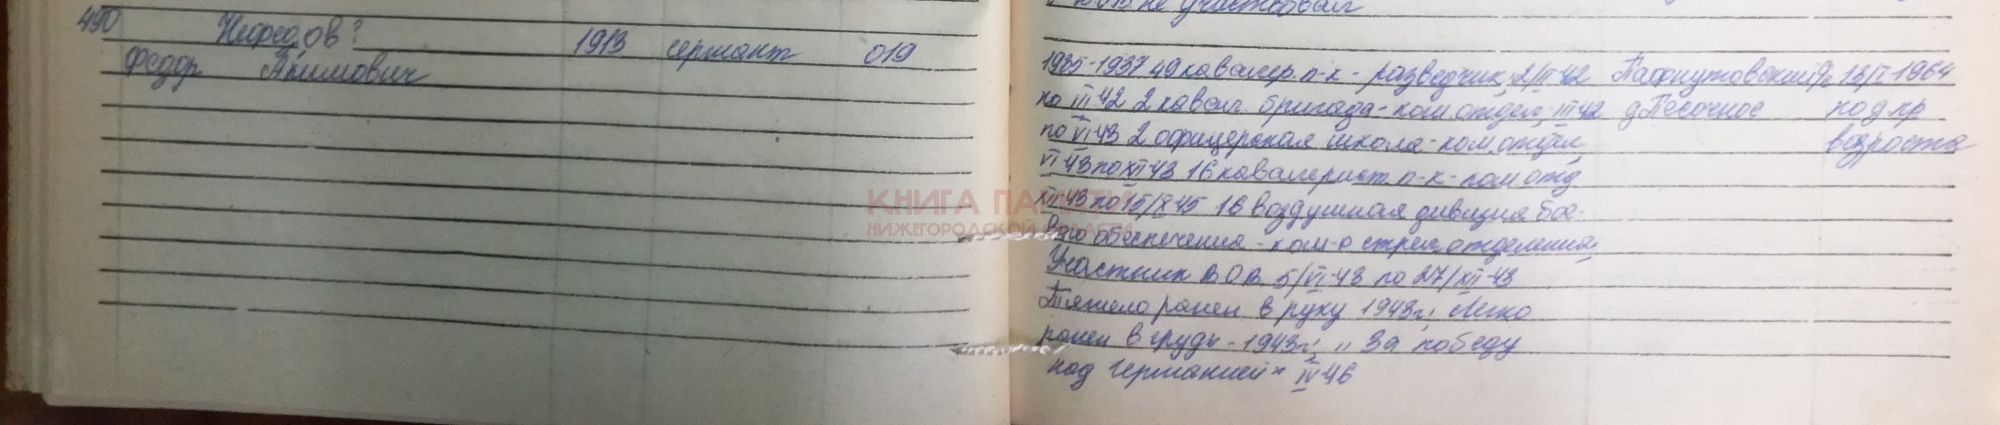 490 Нефедов? 1913 сержант 019
Федор Акимович
не участвовал
1935-1937 49 кавалер. п-к - разведчик, 2/III-42 Пафнутовский 13/I-1964
по III-42 2 кавал. бригада - ком. отдел, III-42 д. Песочное по д. пр.
по VI-43 2 офицерская школа - ком. отдел, возраста
VI-43 по XII-43 16 кавалерист. п-к - пом. отд.
XII-43 по 15/X-45 16 воздушная дивизия бое-
вого обеспечения - ком-р стрел. отделения,
Участник В.О.В. 5/VI-43 по 27/XII-43
Тяжело ранен в руку 1943г; Легко
ранен в грудь - 1943г; "За победу
над Германией" IV-46
КНИГА ПАМЯТИ
НИЖЕГОРОДСКОЙ ОБЛАСТИ